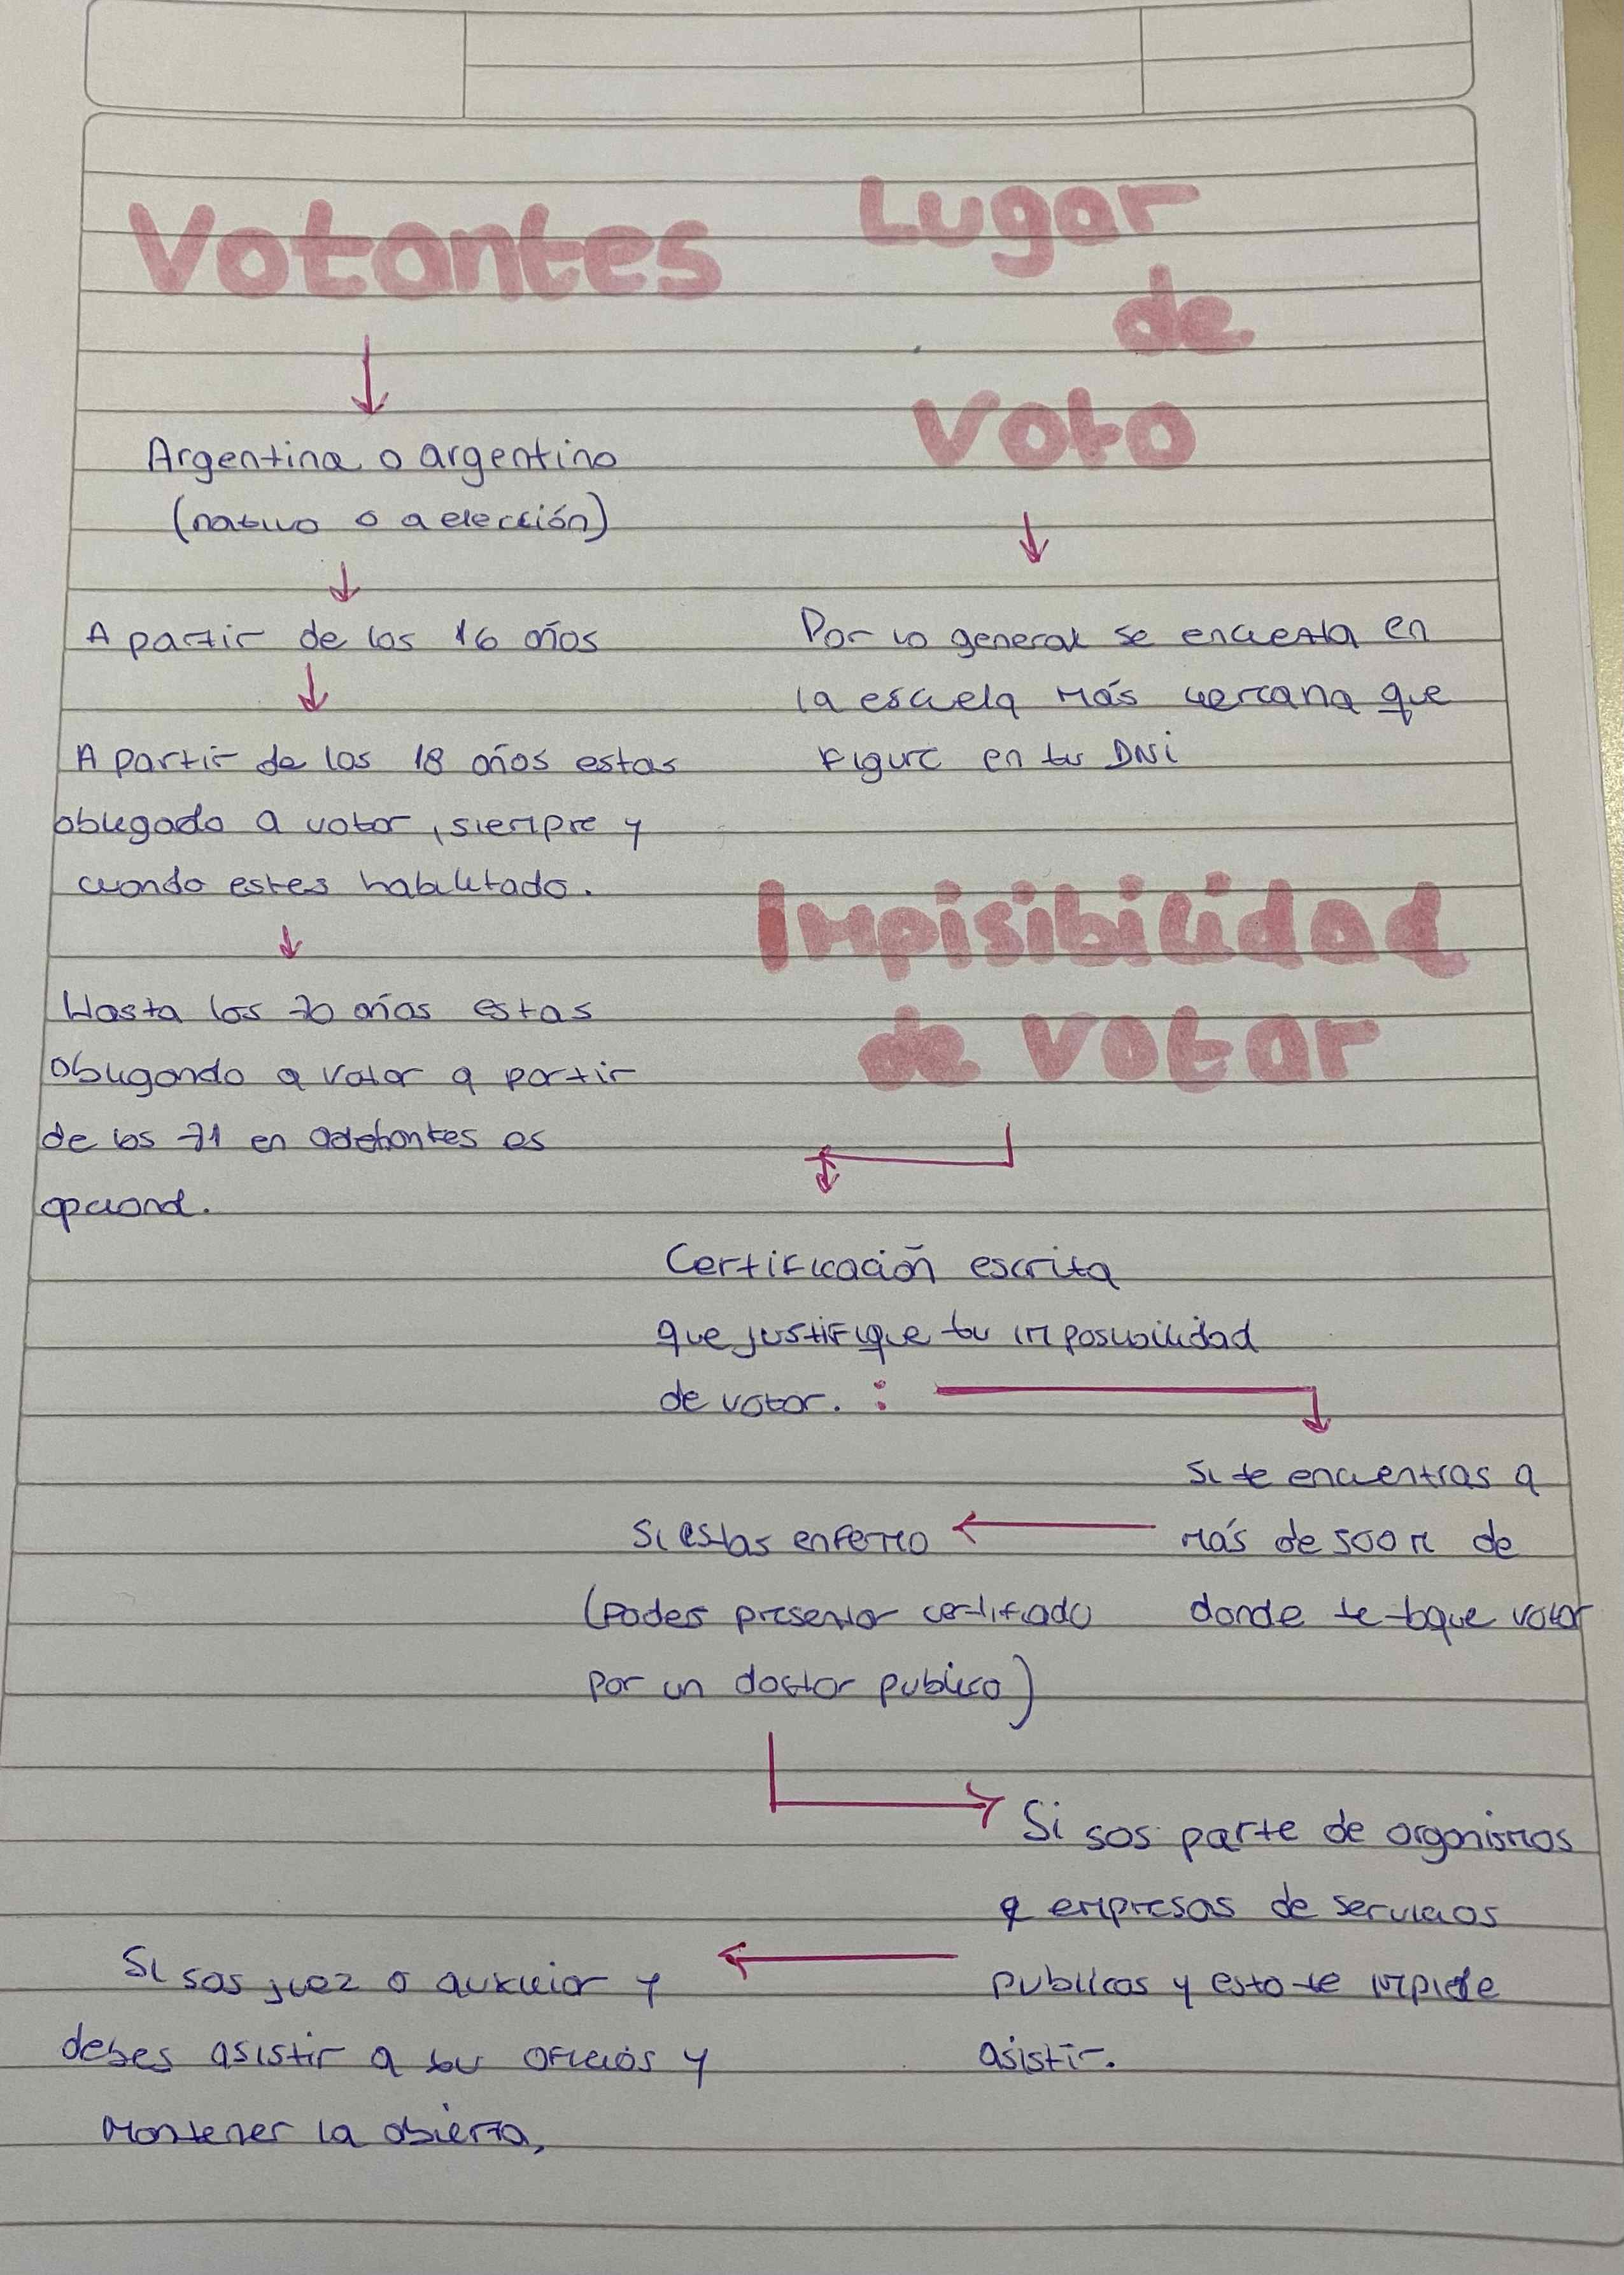 Votantes
Argentina o argentino
(nativo o a elección)
A partir de los 16 años
A partir de los 18 años estas
obligado a votar, siempre y
cuando estes habilitado.
Hasta los 70 años estas
obligando a votar a partir
de los 71 en adelantes es
opcional.
Lugar
de
Voto
Por lo general se encuesta en
la escuela más cercana que
figure en tu DNi
Impisibilidad
de votar
Certificación escrita
que justifique tu imposibilidad
de votar. :
Si te encuentras a
más de 500 m de
donde te toque votar
Si estas enfermo
(Podes presentar certificado
por un doctor publico)
Si sos parte de organismos
empresas de servicios
publicos y esto te impide
asistir.
Si sos juez o auxiliar y
debes asistir a tu oficios y
Mantener la abierta,